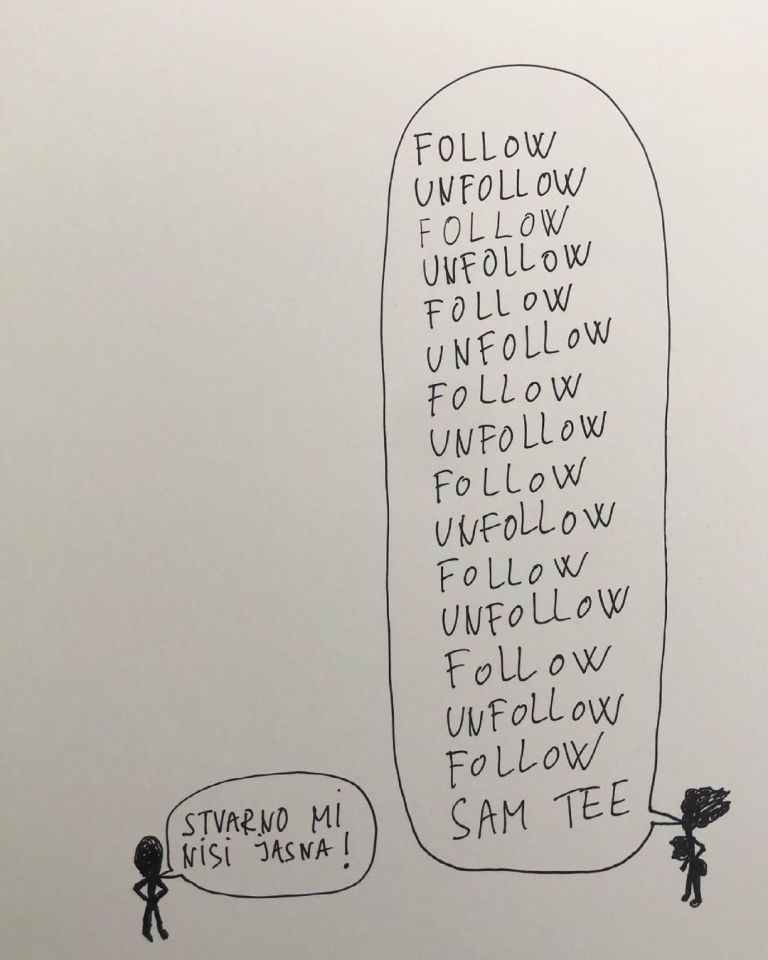 FOLLOW
UNFOLLOW
FOLLOW
UNFOLLOW
FOLLOW
UNFOLLOW
FOLLOW
UNFOLLOW
FOLLOW
UNFOLLOW
FOLLOW
UNFOLLOW
FOLLOW
UNFOLLOW
FOLLOW
SAM TEE
STVARNO MI
NISI JASNA!